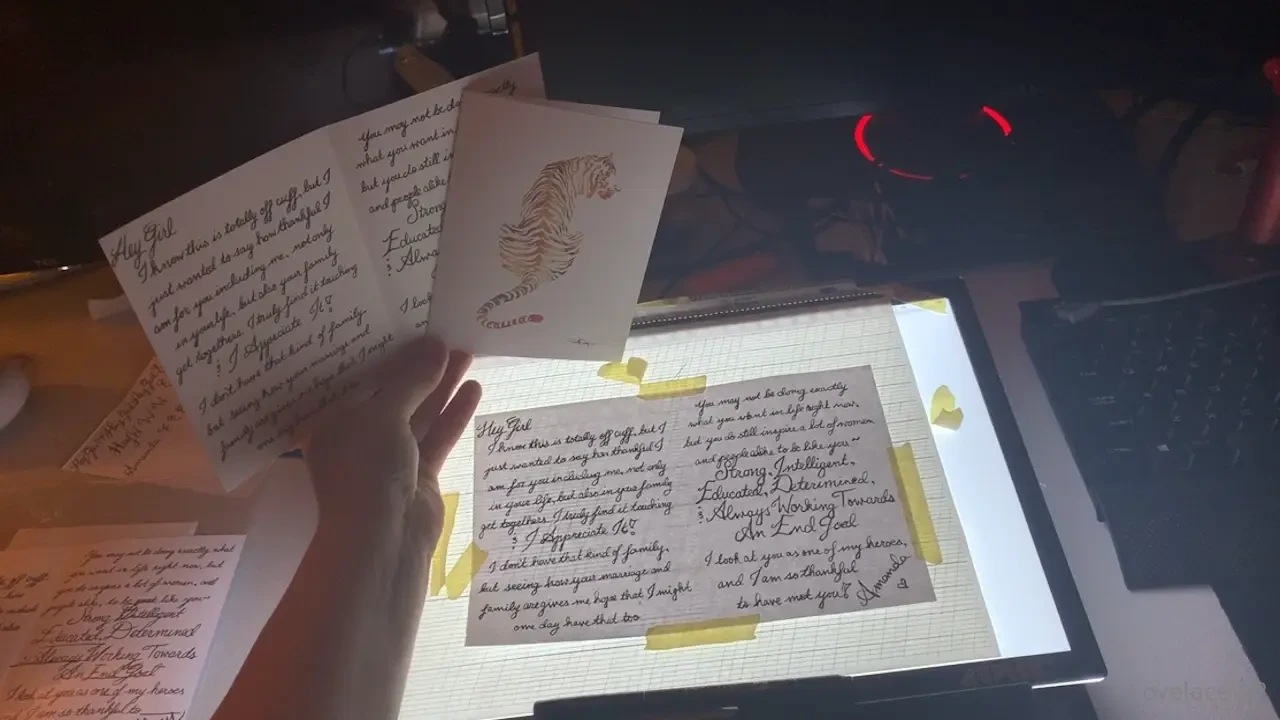 Hey Girl
I know this is totally off cuff, but I
just wanted to say how thankful I
am for you including me, not only
in your life, but also your family
get togethers. I truly find it touching
& I Appreciate It♡
I don't have that kind of family
but seeing how your marriage and
family are gives me hope that I might
one day have
You may not be
what you want in
but you do still in
and people alike
Strong
Educated
& Alwa
I look
Hey Girl
I know this is totally off cuff, but I
just wanted to say how thankful I
am for you including me, not only
in your life, but also in your family
get togethers. I truly find it touching
& I Appreciate It♡
I don't have that kind of family,
but seeing how your marriage and
family are gives me hope that I might
one day have that too
You may not be doing exactly
what you want in life right now,
but you do still inspire a lot of women
and people alike to be like you~
Strong, Intelligent,
Educated, Determined,
& Always Working Towards
An End Goal
I look at you as one of my heroes,
and I am so thankful
to have met you♡ Amanda
♡
off cuff
You may not be doing exactly what
you want in life right now, but
you do inspire a lot of women, and
people alike, to be like you~
Strong Intelligent
Educated, Determined
& Always Working Towards
An End Goal
I look at you as one of my heroes
& I am so thankful to
ovelace